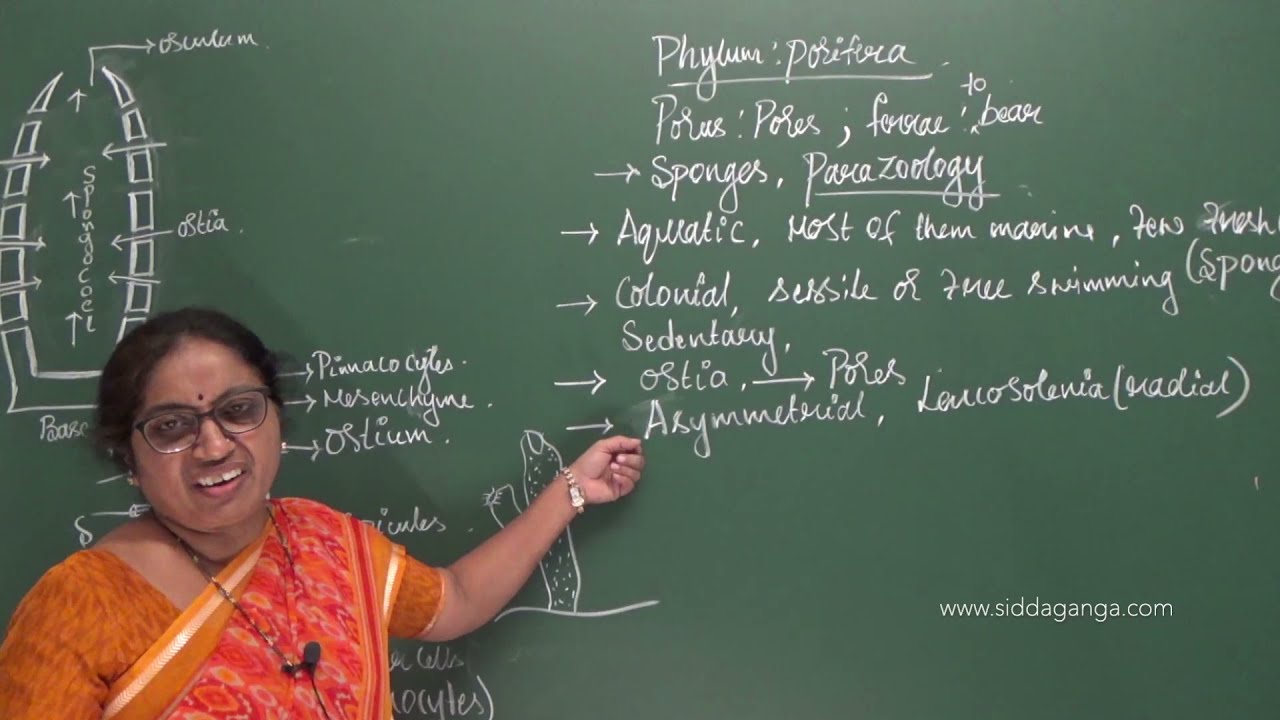 osculum.
Spongocoel
ostia.
Pinnacocytes.
Mesenchyme.
Ostium.
Phylum: Porifera.
to
Porus: Pores; ferrae: bear
→ Sponges, Parazoology
→ Aquatic, Most of them marine, few fresh
→ Colonial, sessile or free swimming (Spong
Sedentary,
→ Ostia, → Pores
→ Asymmetrial, Leucosolenia (radial)
www.siddaganga.com